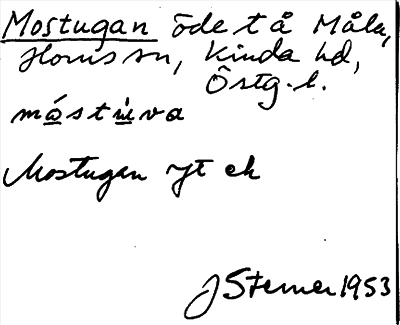 Mostugan öde t å Måla,
Horns sn, Kinda hd,
Östg. l.
måstuva
Mostugan yt ek
J Sterner 1953